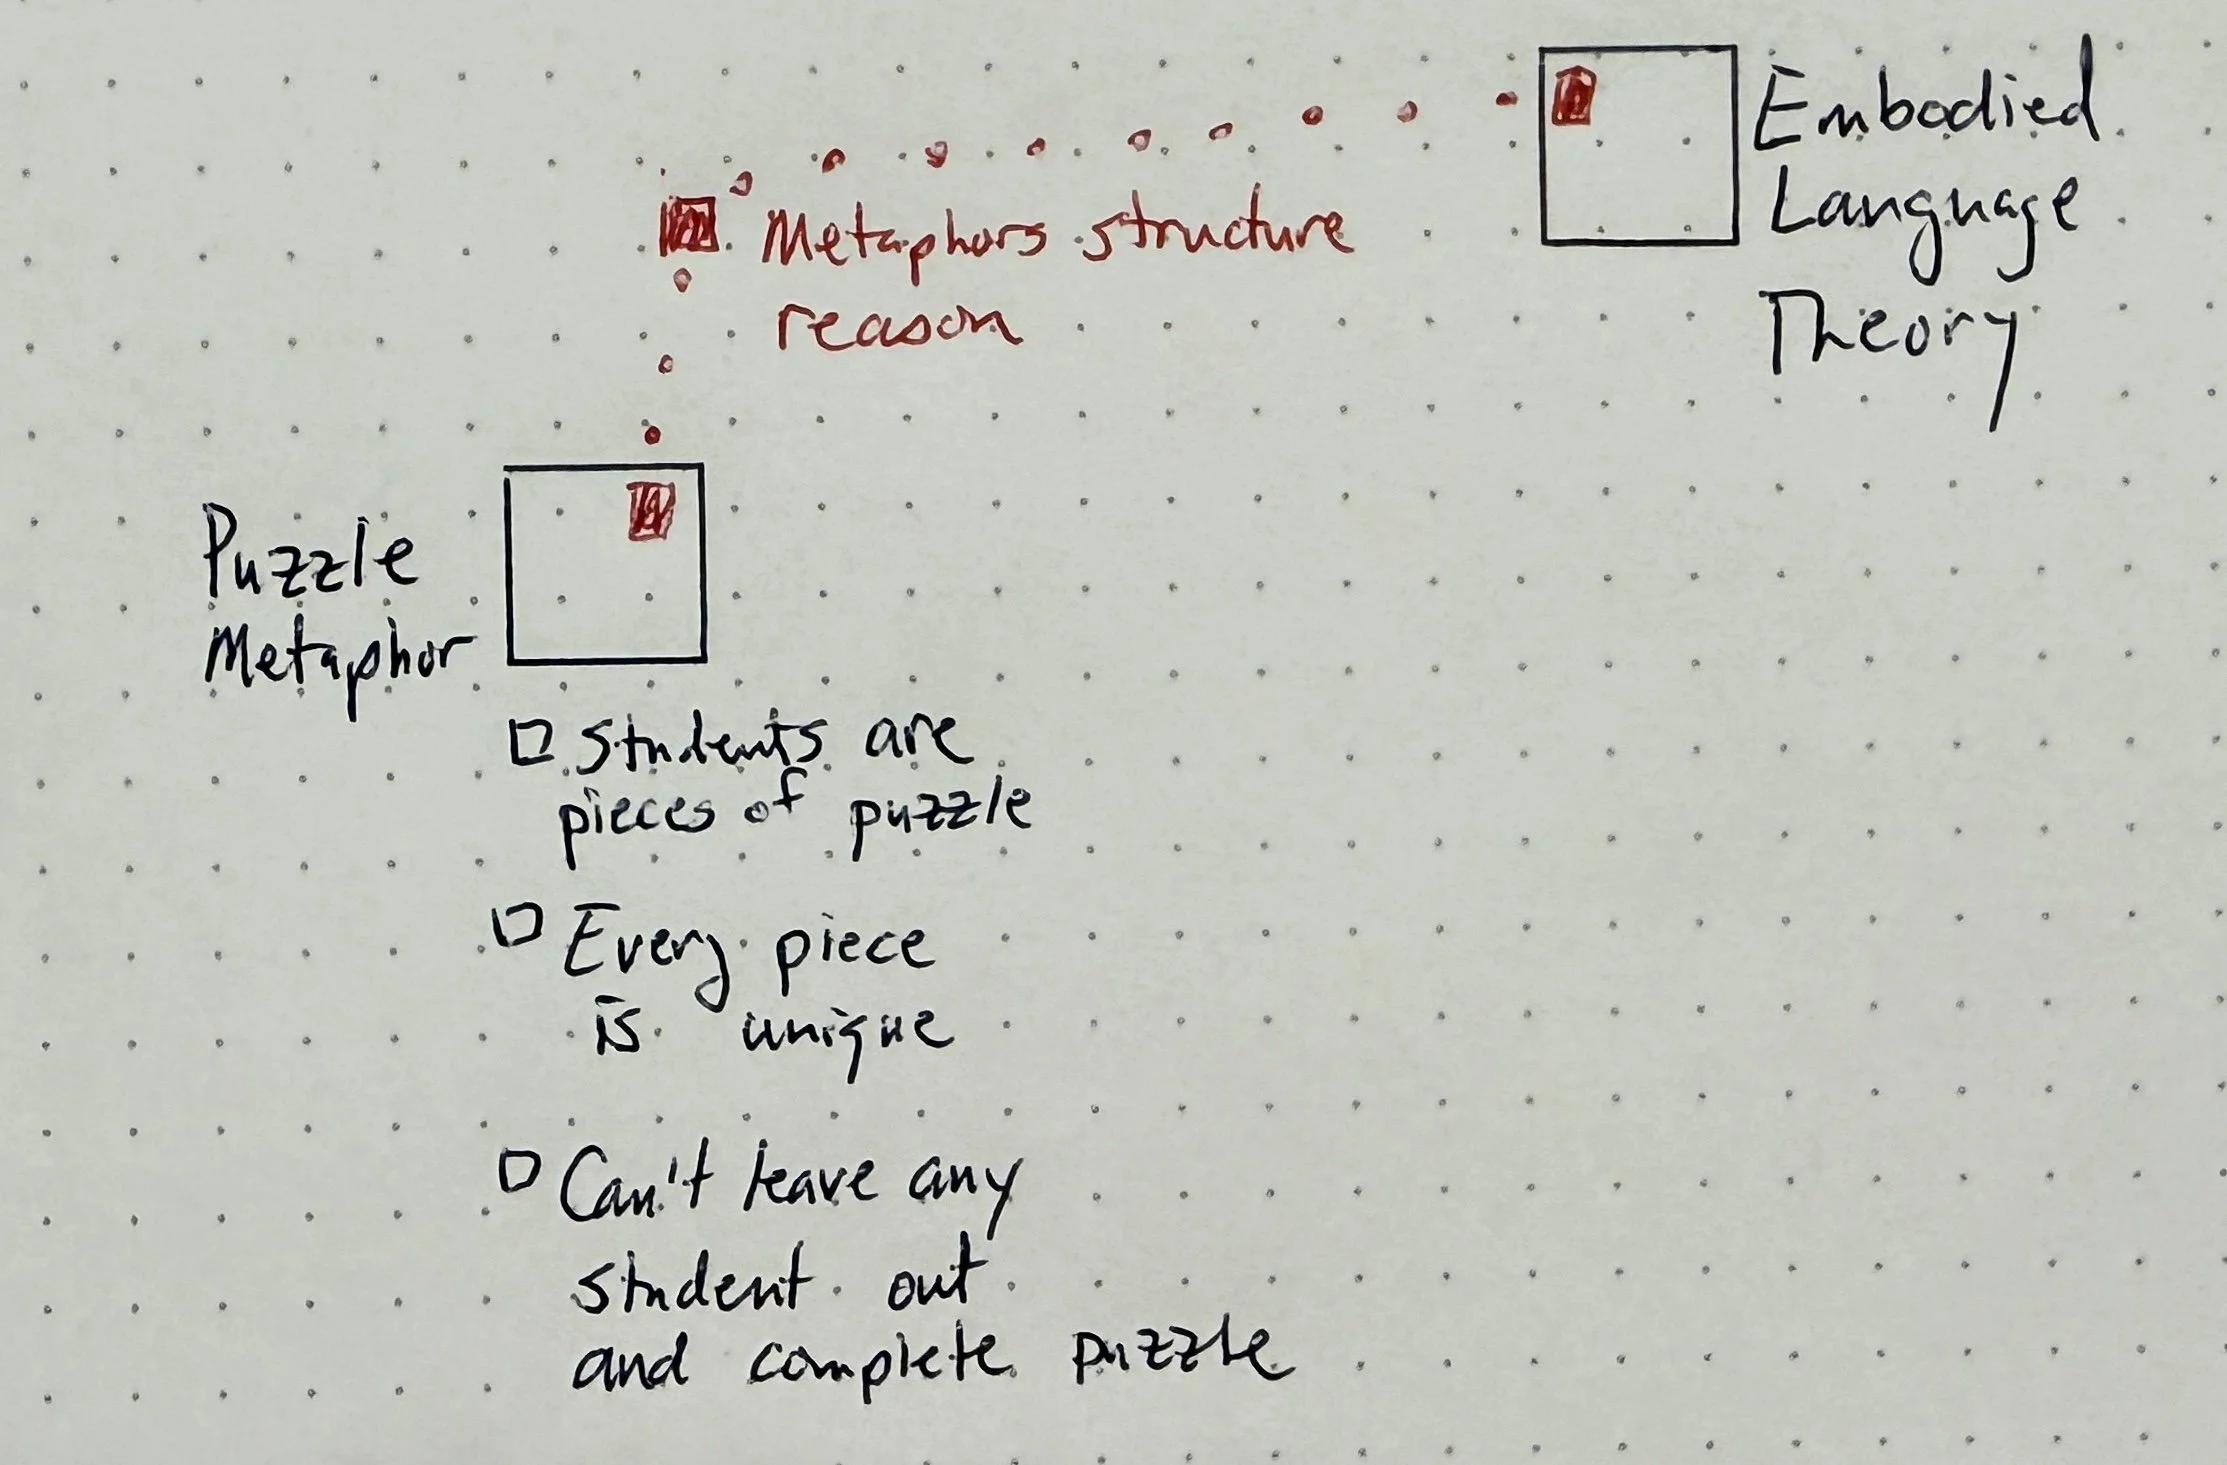 Embodied
Language
Theory
Metaphors structure
reason
Puzzle
Metaphor
Students are
pieces of puzzle
Every piece
is unique
Can't leave any
student out
and complete puzzle